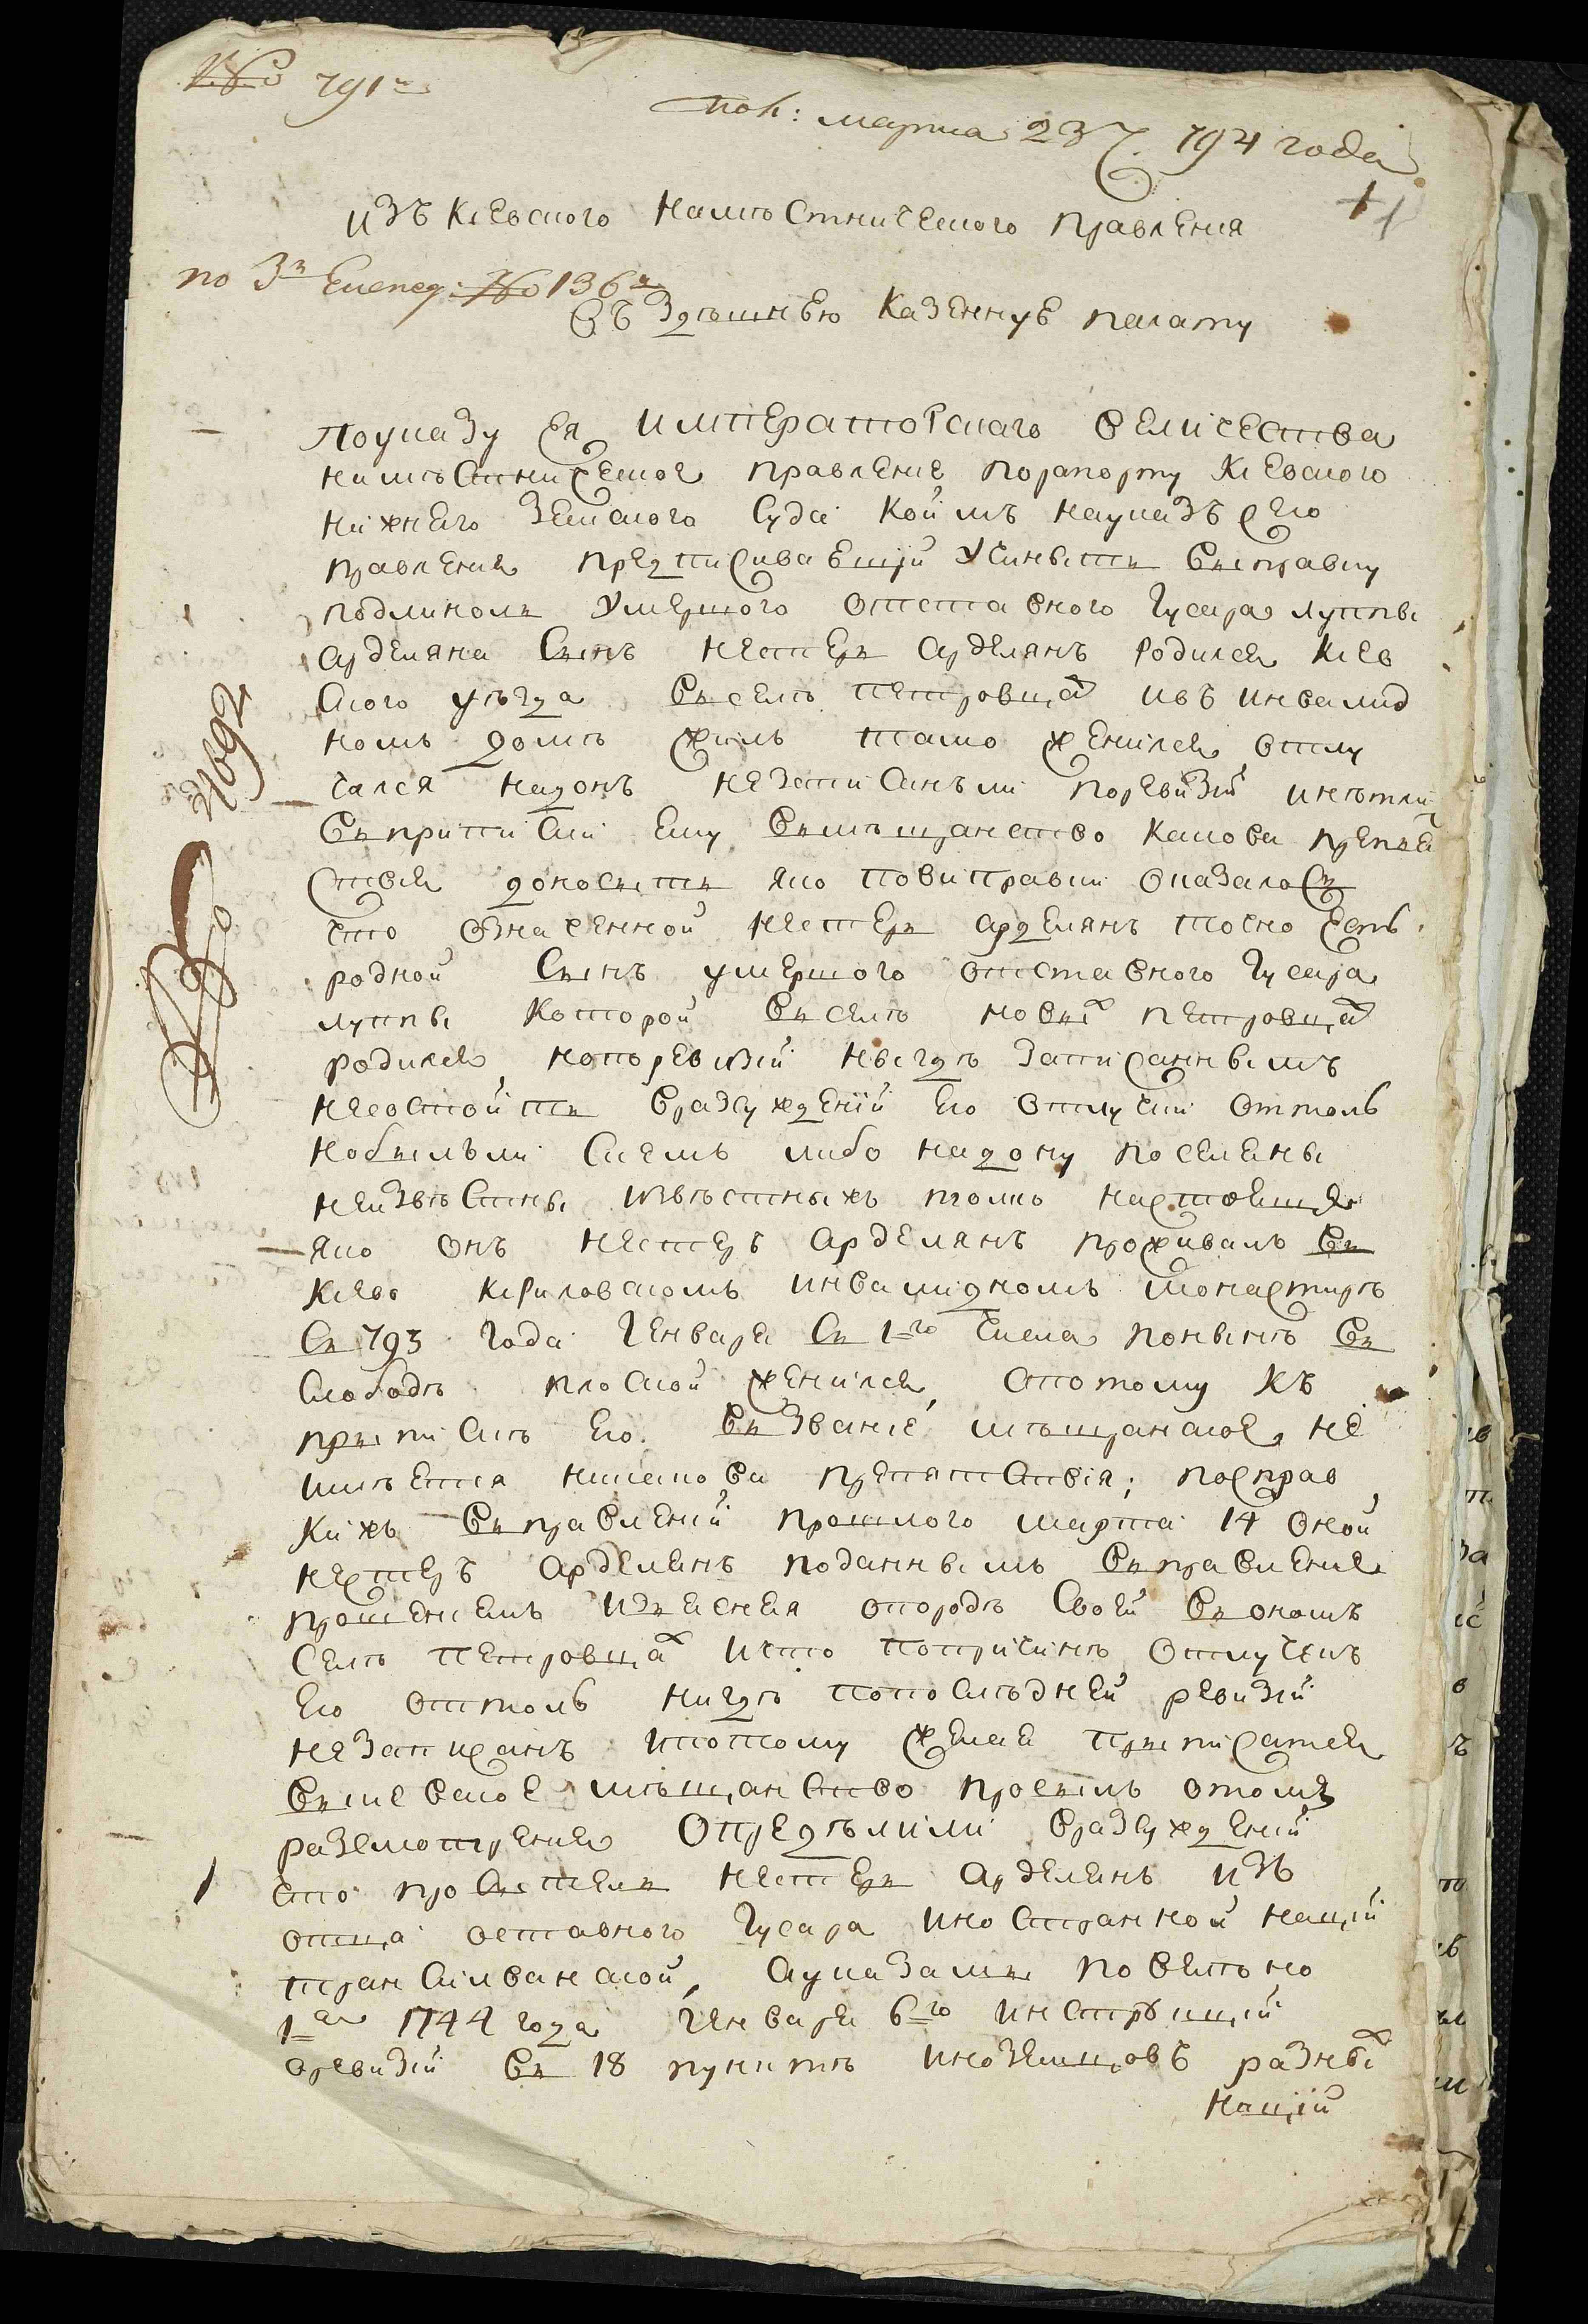 № 791
пол: марта 23 794 года
изъ Кіевского наместнического правленія
по 3й Експед: № 136
въ здешнею казенную палату
По указу ея императорскаго величества
наместническое правление по рапорту Кіевского
нижнего земского суда коимъ на указъ сего
правления предписивающій учинить виправку
подлинноли умершого отставного гусара луппы
арделяна синъ нестеръ арделянъ родился Кіев
ского уезда в селе петровцах и въ инвалид
номъ доме жилъ тамо женился отлу
чался на донъ не записанъ ли по ревизіи и нетли
в приписки ему в мещанство какова препя
ствия доносить яко по виправки оказалось
что означенной нестер арделянъ точно есть
родной синъ умершого отставного гусара
луппы которой в селе новых петровцах
родился но по ревизіи нигде записаннымъ
не состоитъ в разсужденіи его отлучки оттоль
но былъ ли с кемъ либо на дону поселены
неизвестны известныхъ толко настоящее
яко онъ нестеръ арделянъ проживалъ в
Кіево Кириловскомъ инвалидномъ монастире
съ 793 года генваря съ 1го числа поныне в
слободе плоской женился, а потому къ
приписке его в званіе мещанское не
имеется никакова препятствія; по справ
ки жъ в правленіи прошлого марта 14 оной
нестеръ арделянъ поданнымъ в правление
прошениемъ изъясняя о породе своей в ономъ
селе петровцах и что по причине отлучки
его оттоль нигде по последней ревизіи
незаписанъ и потому желая приписатся
в кіевское мещанство просилъ о томъ
разсмотрения Определили в разсужденіи
что проситель нестер арделянъ изъ
отца оставного гусара иностранной націи
трансилванской, а указами повелено
1м 1744 года генваря 6го инструкціи
о ревизіи в 18 пункте иноземцовъ разных
націй